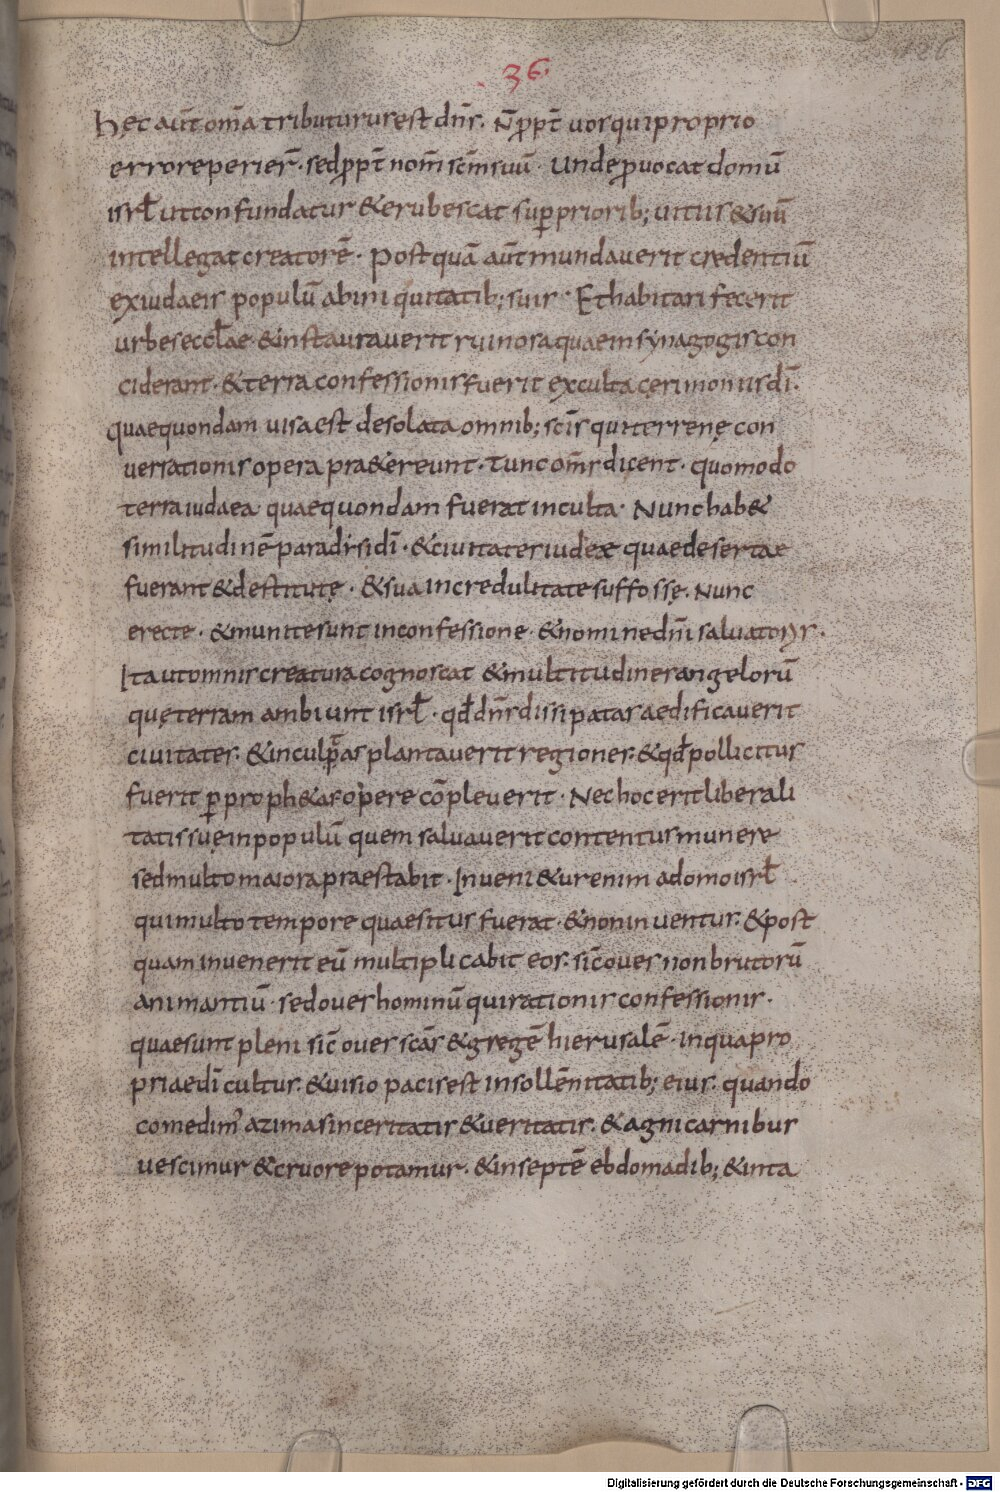 136
36.
Hęc aūt om̄a tributurus est dn̄s. N̄ ꝓpt̄ uos qui proprio
errore perier̄. sed ꝓpt̄ nom̄ sc̄m suū. Unde ꝓuocat domū
isrł ut confundatur & erubescat suꝑ prioribꝫ uitiis & suū
intellegat creatorē. Postquā aūt mundauerit credentiū
ex iudaeis populū ab iniquitatibꝫ suis. Et habitari fecerit
urbes eccłae & instaurauerit ruinosa quae in synagogis con
ciderant. & terra confessionis fuerit exculta cęrimoniis dī.
quae quondam uisa est desolata omnibꝫ sc̄is qui terrenę con
uersationis opera prae&ereunt. tunc om̄s dicent. quomodo
terra iudaea quae quondam fuerat inculta. Nunc hab&
similitudinē paradysi dī. & ciuitates iudęę quae desertae
fuerant & destitutę. & sua incredulitate suffossę. Nunc
erecte. & munite sunt in confessione. & nomine dn̄i saluatoris.
Ita ut omnis creatura cognoscat & multitudines angelorū
quę terram ambiunt isrł. qđ dn̄s dissipatas aedificauerit
ciuitates. & incul&as plantauerit regiones. & qđ pollicitus
fuerit ꝑ proph&as opere cōpleuerit. Nec hoc erit liberali
tatis suę in populū quem saluauerit contentus munere
sed multo maiora praestabit. Inueni&ur enim a domo isrł
qui multo tempore quaesitus fuerat. & non inuentus. & post
quam inuenerit eū multiplicabit eos. sic̄ oues non brutorū
animantiū. sed oues hominū qui rationis confessionis.
quae sunt pleni sic̄ oues sc̄as & gregē hierusalē. in qua pro
priae dī cultus. & uisio pacis est in sollēnitatibꝫ eius. quando
comedimꝰ azima sinceritatis & ueritatis. & agni carnibus
uescimur & cruore potamur. & in septē ebdomadibꝫ & in ta
Digitalisierung gefördert durch die Deutsche Forschungsgemeinschaft - DFG